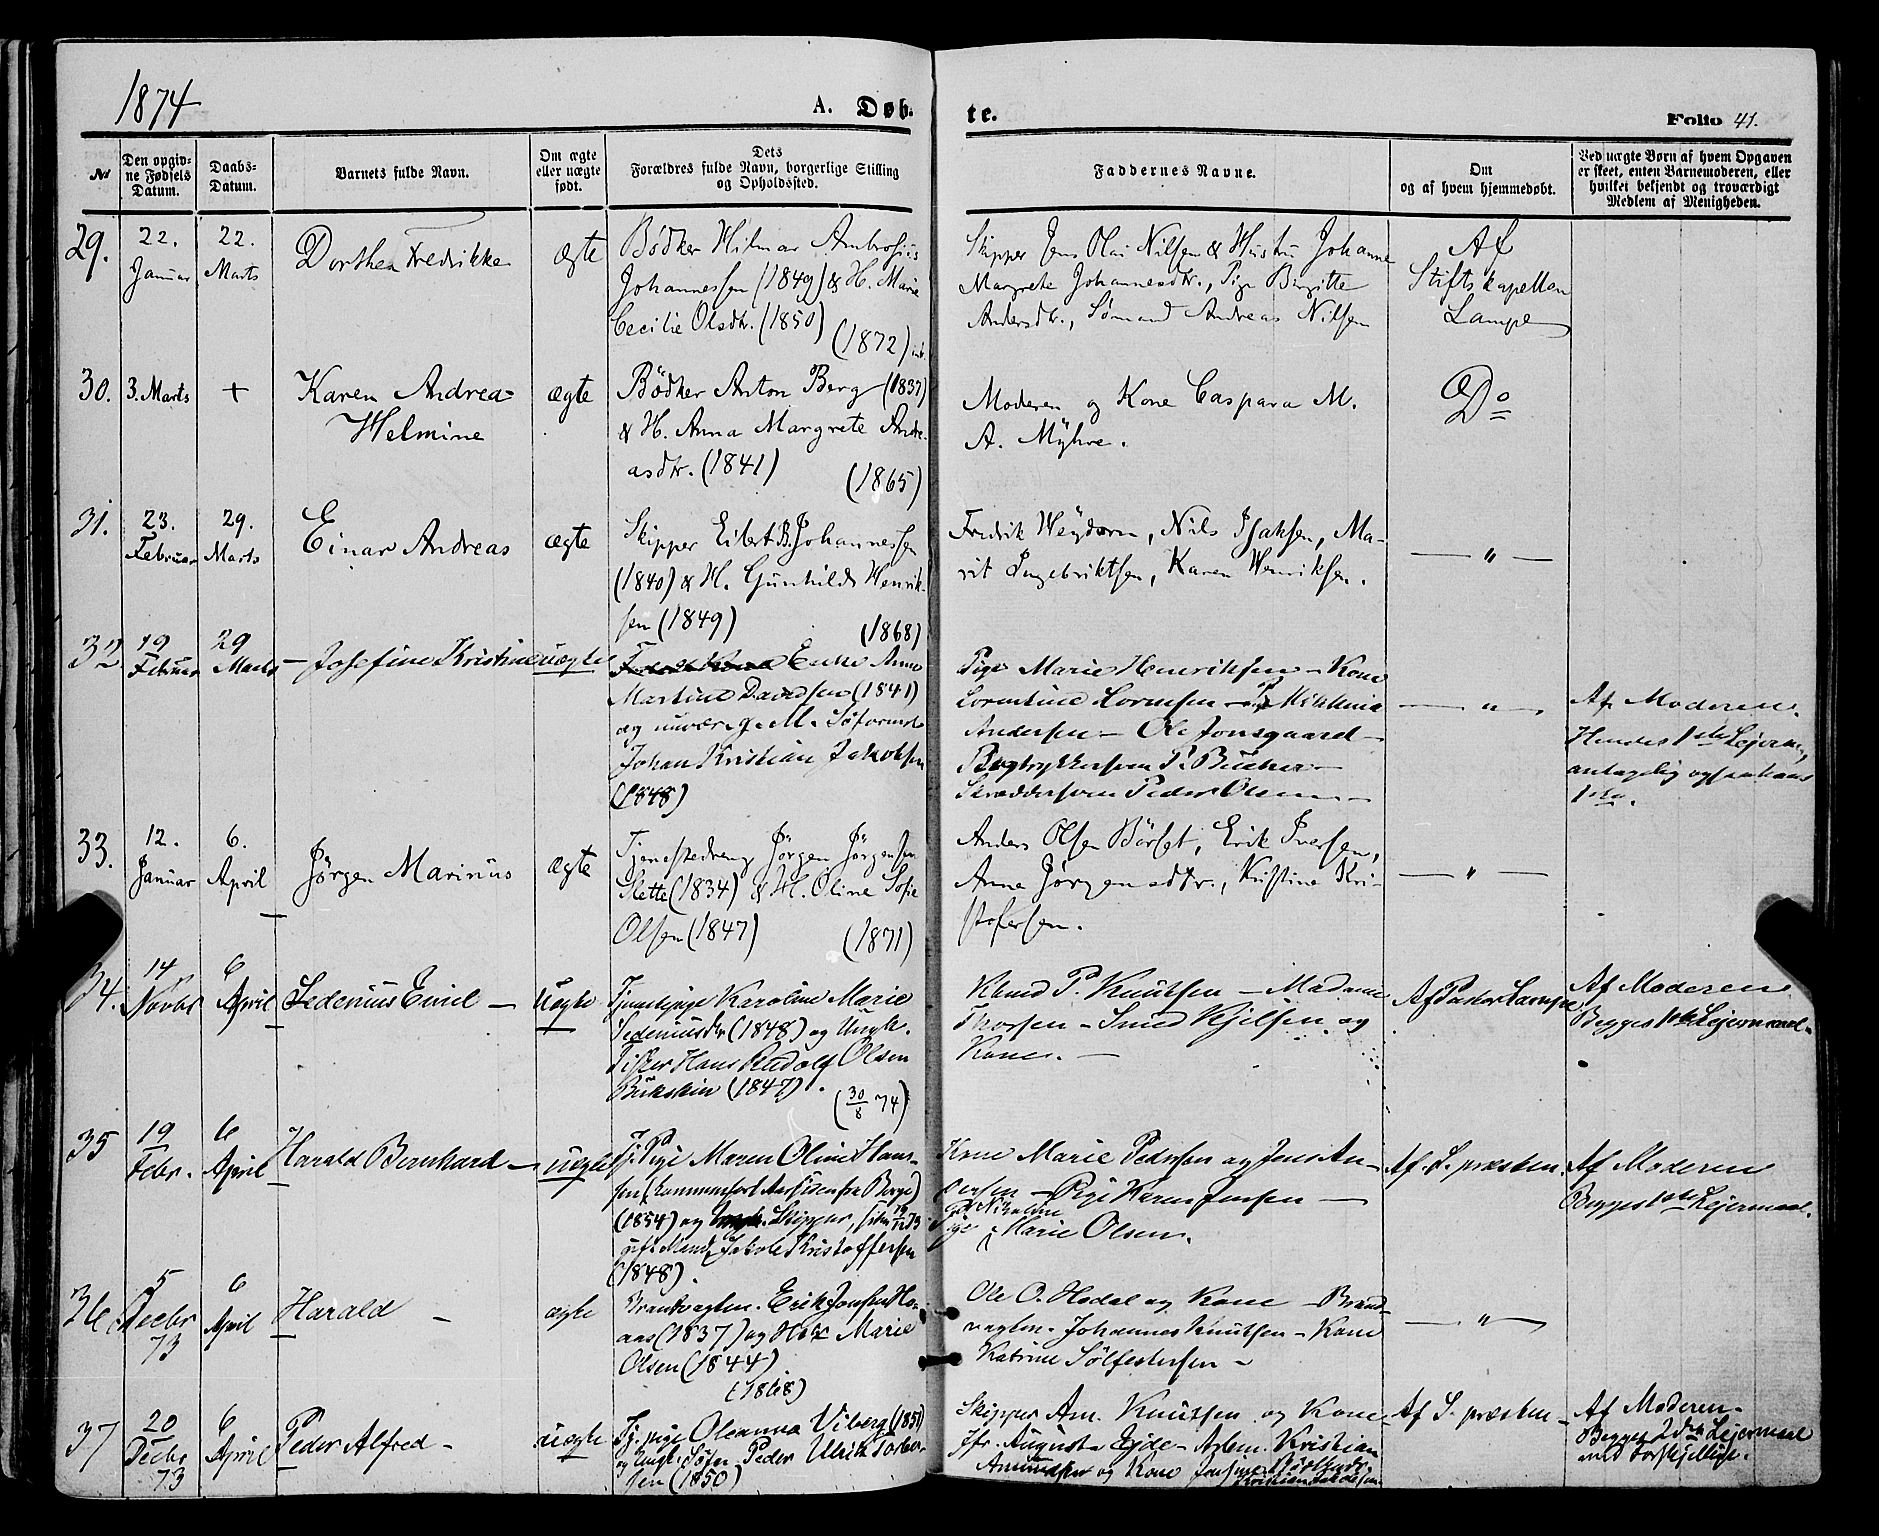 1874
A. Døb.
te.
Folio 41.
№
Den opgiv-
ne Fødsels
Datum.
Daabs-
Datum.
Barnets fulde Navn.
Om ægte
eller uægte
født.
Dets
Forældres fulde Navn, borgerlige Stilling
og Opholdssted.
Faddernes Navne.
Om
og af hvem hjemmedøbt.
Ved uægte Børn af hvem Opgaven
er skeet, enten Barnemoderen, eller
hvilket bekjendt og troværdigt
Medlem af Menigheden.
29.
22.
Januar
22.
Marts
Dorthea Fredrikke
ægte
Bødker Hilmar Ambrosius
Johannessen (1849) & H. Marie
Cecilie Olsdtr. (1850)
(1872)
Skipper Jens Olai Nilsen & Hustru Johanne
Margrete Johannesdtr., Pige Birgitte
Andersdtr., Sømand Andreas Nilsen
Af
Stiftskapellan
Lampe
30.
3. Marts
+
Karen Andrea
Helmine
ægte
Bødker Anton Berg (1837)
& H. Anna Margrete Andre-
asdtr. (1841)
(1865)
Moderen og Kone Caspara M.
A. Myhre.
Do
31.
23.
Februar
29.
Marts
Einar Andreas
ægte
Skipper Eilert B. Johannessen
(1840) & H. Gunhild Henrik-
sen (1849)
(1868)
Fredrik Weydorn, Nils Isaksen, Ma-
rit Ingebriktsen, Karen Henriksen.
— " —
32.
19
Februar
29
Marts
Josefine Kristine
uægte
Enke Anne
Martine Davidsen (1841)
og nuvær. g. M. Søformd
Johan Kristian Jakobsen
(1848)
Pige Marie Henriksen - Kone
Lorentine Lorensen - Pige Mikkeline
Andersen - Ole Jonsgaard -
Bogtrykkersven P. Bucher -
Skræddersven Peder Olsen -
— " —
Af Moderen.
Hendes 1ste Lejerm.,
antagelig ogsaa hans
1ste.
33.
12.
Januar
6.
April
Jørgen Marinus
ægte
Tjenestedreng Jørgen Jørgensen
Slette (1834) & H. Oline Sofie
Olsen (1847)
(1871)
Anders Olsen Børset, Erik Iversen,
Anne Jørgensdtr., Kristine Kri-
stofersen.
— " —
34.
14
Novbr
6
April
Sedenius Emil -
Uægte
Tjenestepige Karoline Marie
Sedeniusdtr (1848) og Ungk.
Fisker Hans Rudolf Olsen
Bukskin (1847).
(30/8 74)
Knud P. Knutsen - Madame
Thorsen - Smed Kjelsen og
Kone. -
Af Pastor Lampe
Af Moderen
Begges 1ste Lejermaal.
35
19
Febr.
6
April
Harald Bernhard -
uægte
Tj. Pige Maren Oline Hans-
sen
(1854) og Ungk. Skipper, siden
gift Mand Jakob Kristoffersen
(1848).
Kone Marie Pedersen og Jens An-
dersen - Pige Karen Jensen -
Pige Marie Olsen.
Af S. præsten.
Af Moderen
Begges 1ste Lejermaal.
36
5
Decbr
73
6
April
Harald -
ægte
Brandvagtm. Erik Jonsen Ho-
aas (1837) og Hstr Marie
Olsen (1844).
(1868)
Ole O. Hodal og Kone - Brand-
vagtm. Johannes Knutsen - Kone
Katrine Sølfestersen -
— " —
37
20
Decbr
73
6
April
Peder Alfred -
uægte
Tj. pige Oleanna Viberg (1851)
og Ungk. Søfm. Peder Ulrik
sen (1850)
Skipper Am. Knutsen og Kone
Jfr. Augusta Eyde - Arbm. Kristian
Amundsen og Kone
Af S. præsten -
Af Moderen -
Begges 2det Lejermaal
med Forskjellige.